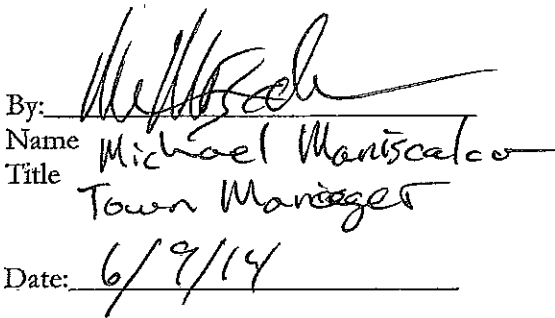 By:
Name Michael Maniscalco
Title Town Manager
Date: 6/9/14